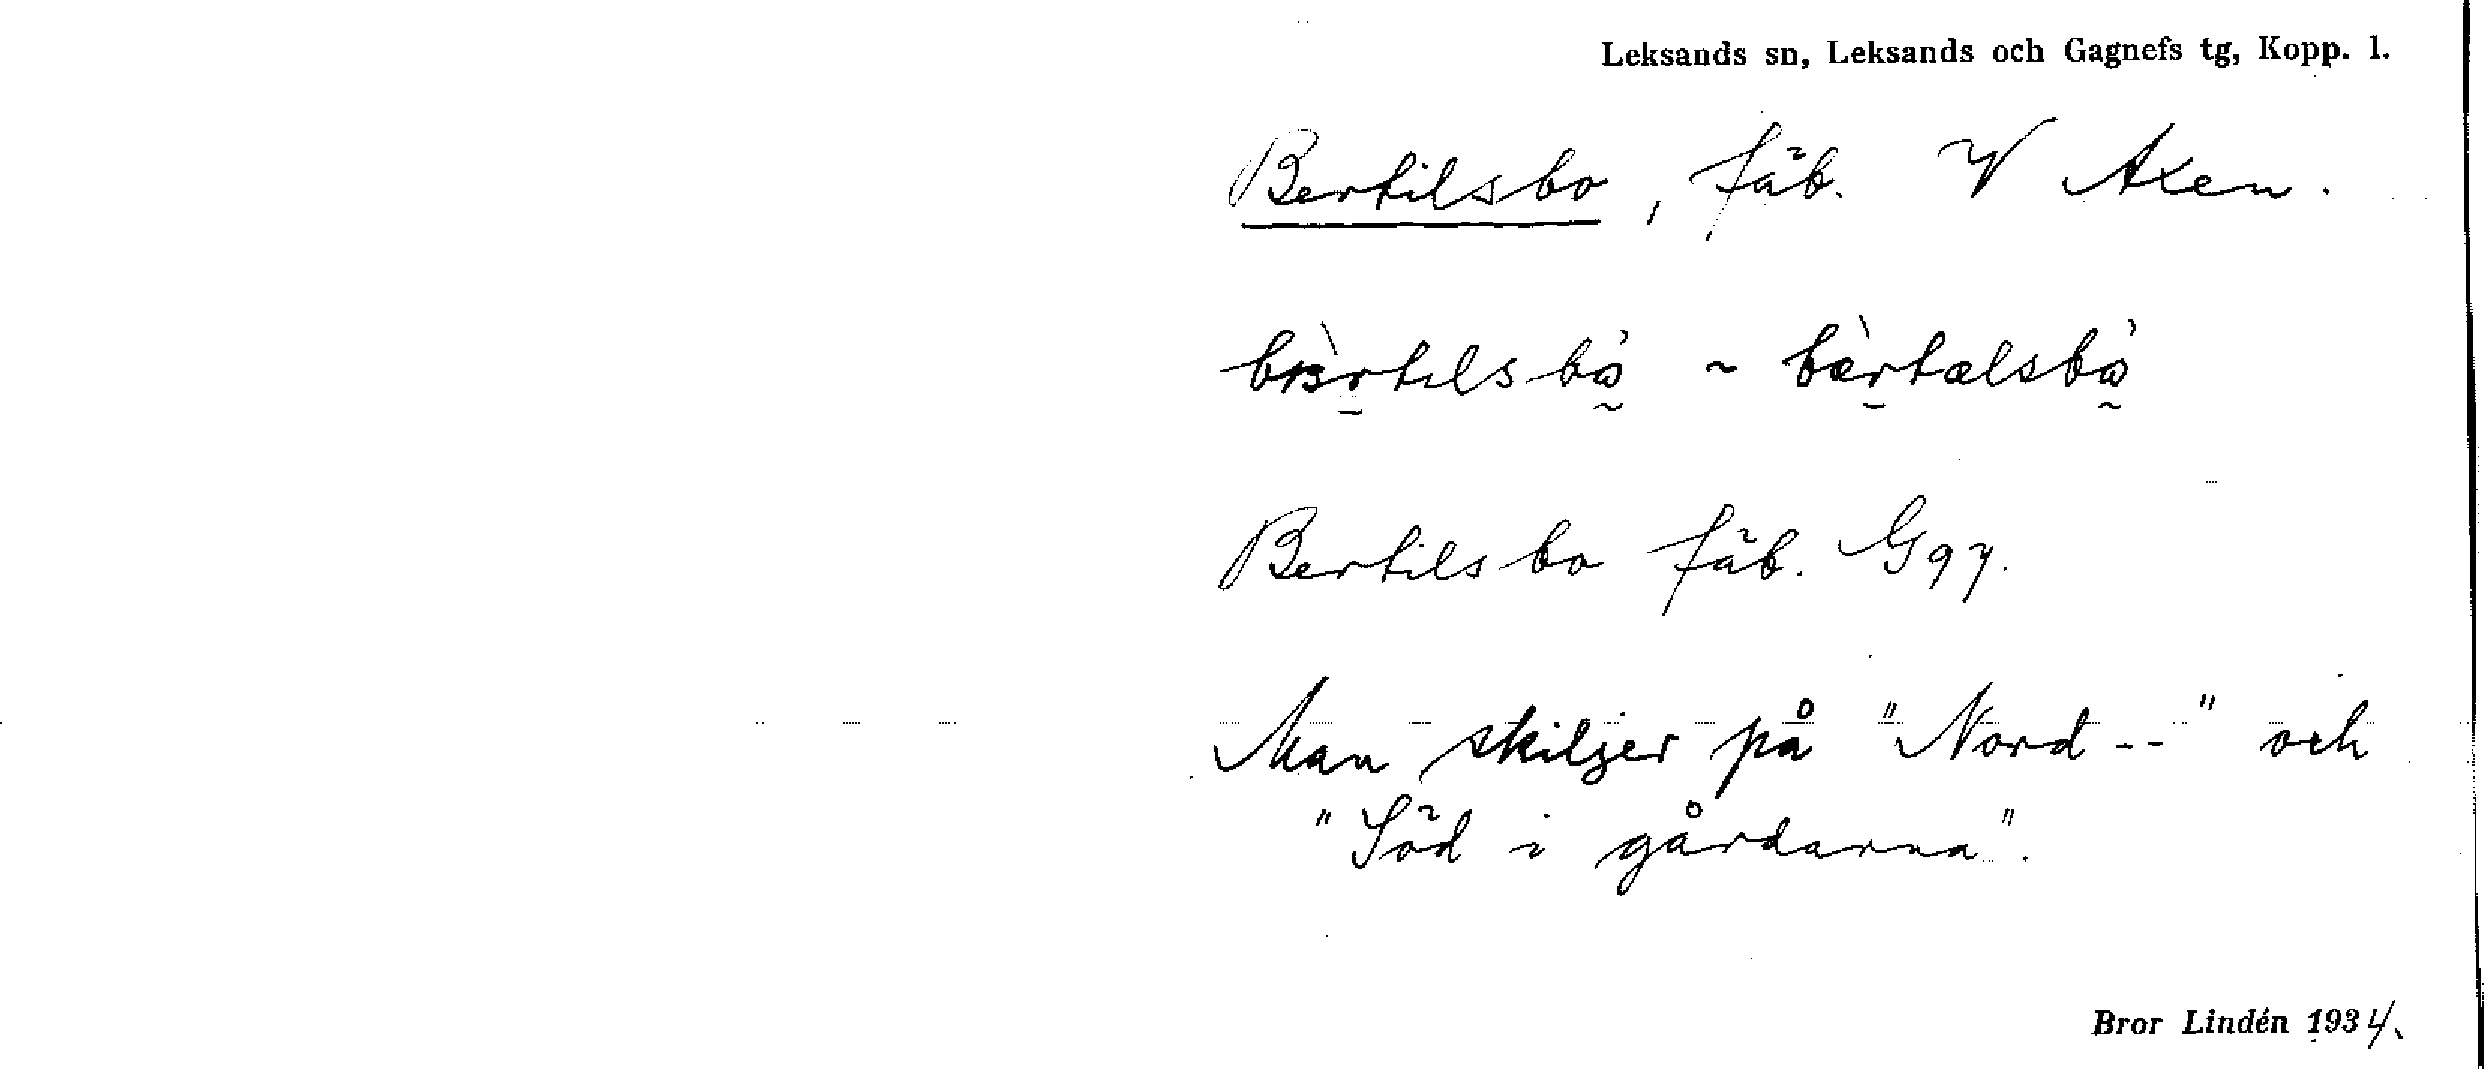 Leksands sn, Leksands och Gagnefs tg, Kopp. l.
Bertilsbo, fäb. V Axen.
~
Bertilsbo fäb. G97.
Man skiljer på "Nord--" och
"Söd i gårdarna".
Bror Lindén 1934.